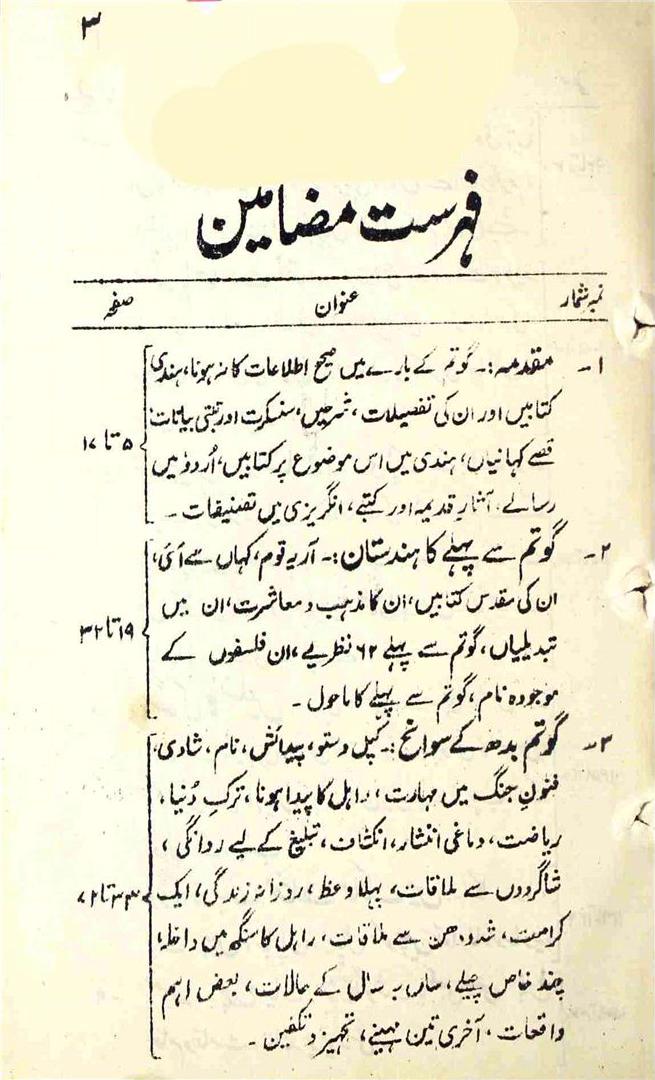 ۳
فہرست مضامین
نمبر شمار عنوان صفحہ
۱- مقدمہ :- گوتم کے بارے میں صحیح اطلاعات کا نہ ہونا، ہندی
کتابیں اور ان کی تفصیلات، شرحیں، سنسکرت اور تبتی بیانات
قصے کہانیاں، ہندی میں اس موضوع پر کتابیں، اُردو میں
رسالے، آثار قدیمہ اور کتبے، انگریزی میں تصنیفات -
۵ تا ۱۷
۲- گوتم سے پہلے کا ہندستان :- آریہ قوم، کہاں سے آئی،
ان کی مقدس کتابیں، ان کا مذہب و معاشرت، ان میں
تبدیلیاں، گوتم سے پہلے ۶۲ نظریے، ان فلسفوں کے
موجودہ نام، گوتم سے پہلے کا ماحول -
۱۹ تا ۳۲
۳- گوتم بدھ کے سوانح :- کپل وستو، پیدائش، نام، شادی،
فنونِ جنگ میں مہارت، راہل کا پیدا ہونا، ترکِ دُنیا،
ریاضت، دماغی انتشار، انکشاف، تبلیغ کے لیے روانگی،
شاگردوں سے ملاقات، پہلا وعظ، روزانہ زندگی، ایک
کرامت، شدودھن سے ملاقات، راہل کا سنگھ میں داخلہ،
چند خاص چیلے، سال بہ سال کے حالات، بعض اہم
واقعات، آخری تین مہینے، تجہیز و تکفین -
۳۳ تا ۷۲